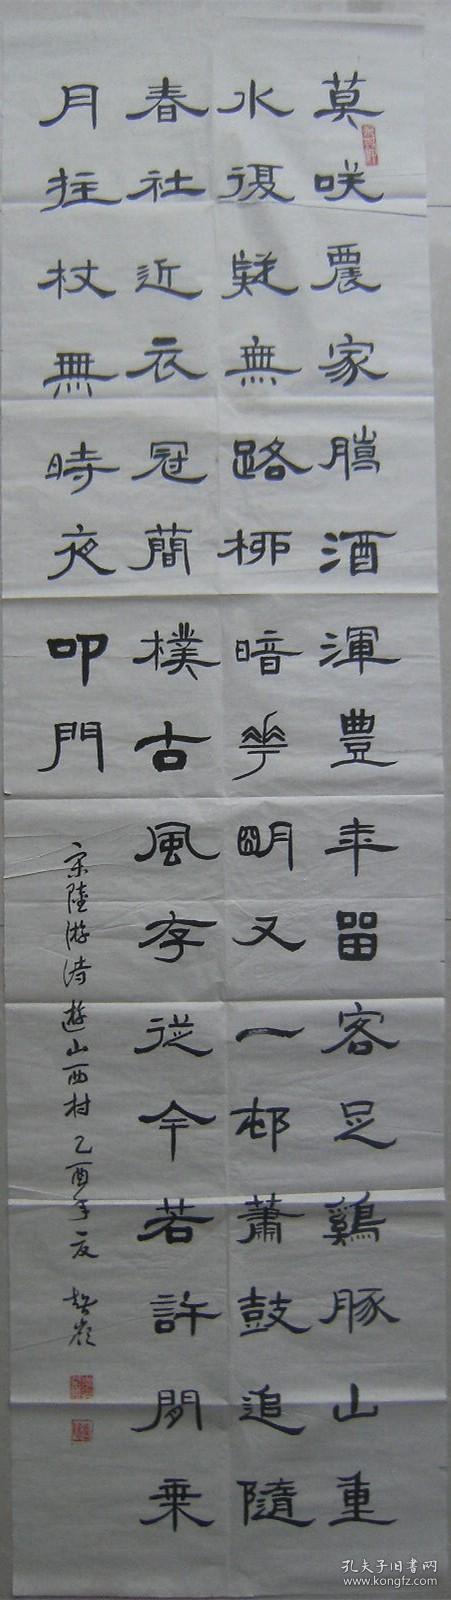 莫咲農家臈酒渾豊年留客足鷄豚山重
水復疑無路柳暗華朙又一邨蕭鼓追隨
春社近衣冠簡樸古風存從今若許閒乗
月拄杖無時夜叩門
宋陸游诗遊山西村乙酉年夏
孔夫子旧书网
www.kongfz.com